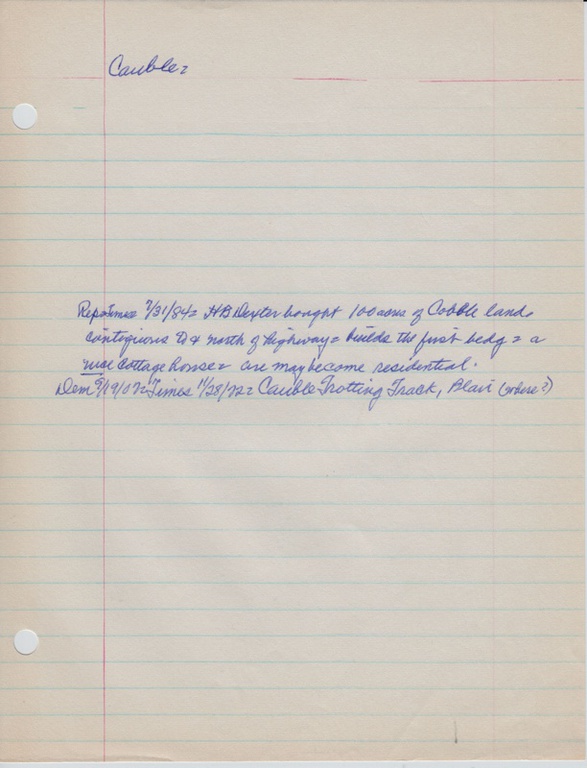 Cauble=
Rep=Times= 7/31/84= HB Dexter bought 100 acres of Cobble land
contigious to & north of highway= builds the first bedg= a
nice cottage house= are may become residential.
Dem 9/19/07= Times 11/28/72= Cauble Trotting Track, Blair (where?)